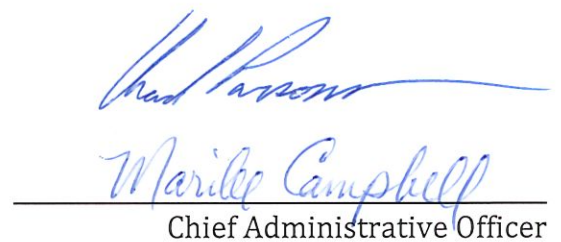 Chad Parsons
Marilee Campbell
Chief Administrative Officer